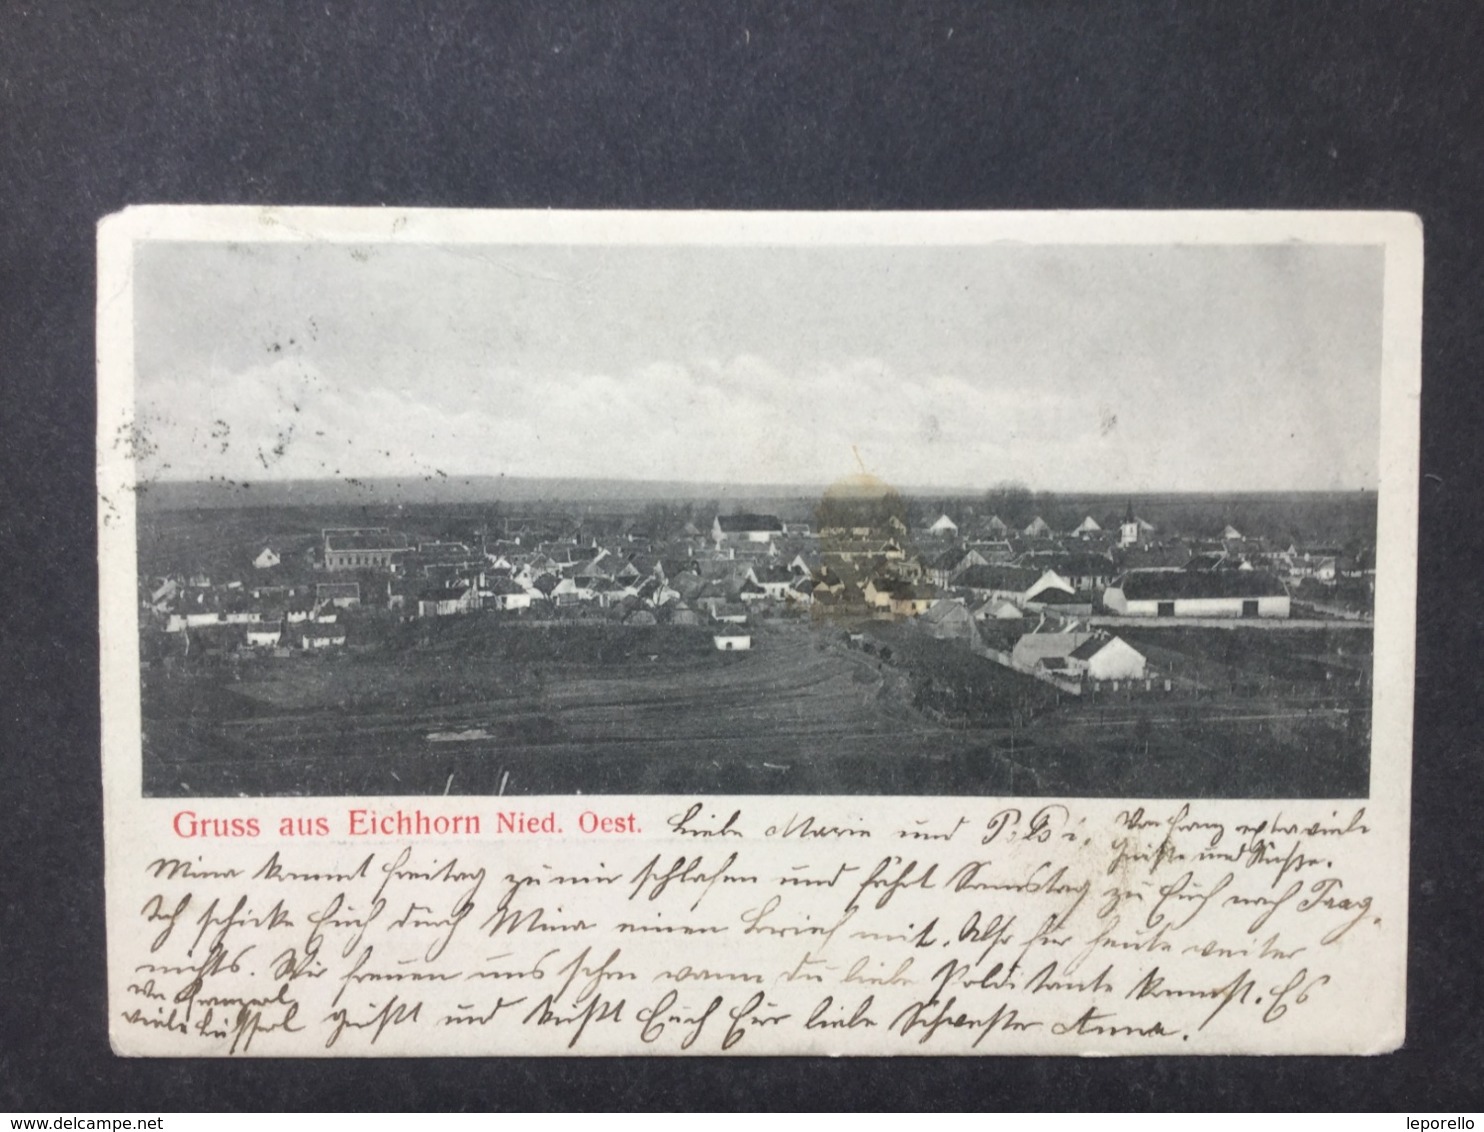 Gruss aus Eichhorn Nied. Oest. Liebe Marie und
Von Franz viele
Grüße und Küsse.
Mina kommt Freitag zu mir schlafen und fährt Samstag zu Euch nach Prag.
Ich schicke Euch durch Mina einen Brief mit. Also für heute weiter
nichts. Wir freuen uns schon wann du liebe Poldi Tante kommst. Es
grüßt und küßt Euch Eure liebe Schwester Anna.
von Franzerl
viele Busserl
www.delcampe.net
leporello